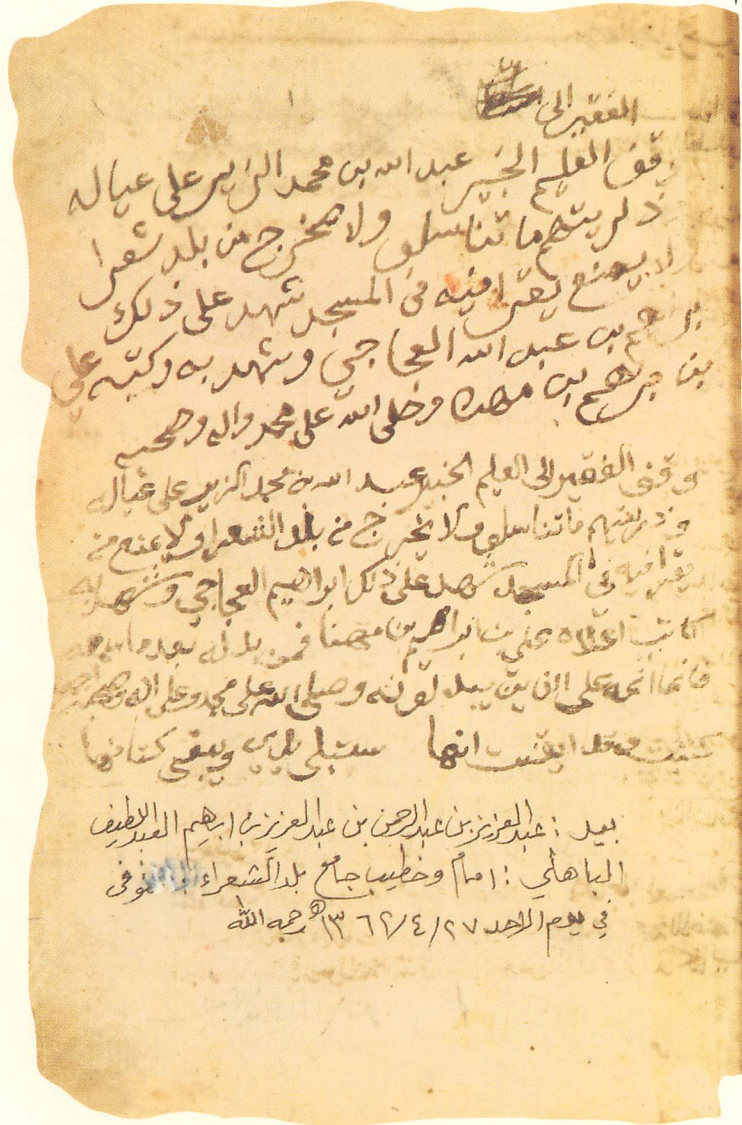 الفقير الى
وقف العليم الخبير عبد الله بن محمد الزير على عياله
ذلريتهم ما تناسلو ولا يخرج من بلد شعرا
ولا يمنع يقرا فيه في المسجد شهد على ذلك
برهيم بن عبد الله العجاجي وشهد به وكتبه علي
بن برهيم بن مهنا وصلى الله على محمد واله وصحبه
وقف الفقير الى العليم الخبير عبد الله بن محمد الزير على عياله
وذريتهم ما تناسلو ولا يخرج من بلد الشعرا ولا يمنع من
يقرا فيه في المسجد شهد على ذلك ابراهيم العجاجي وشهد به
كاتب علي بن ابراهيم بن مهنا فمن بدله بعد ما سمعه
فانما اثمه على الذين يبدلونه وصلى الله على محمد وعلى اله وصحبه
كتبت وقد ايقنت انها ستبلى يدي ويبقى كتابها
بيد : عبد العزيز بن عبد الرحمن بن عبد العزيز بن ابرهيم العبد اللطيف
الباهلي : امام وخطيب جامع بلد الشعراء المتوفى
في يوم الاحد ٢٧/٤/١٣٦٢هـ رحمه الله